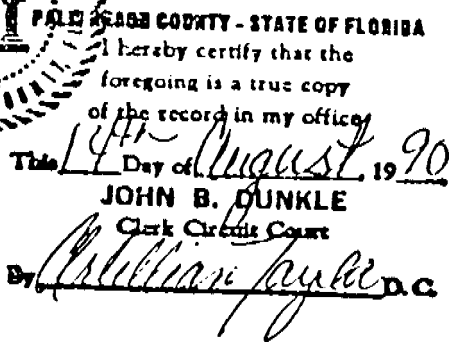 PALM BEACH COUNTY - STATE OF FLORIDA
I hereby certify that the
foregoing is a true copy
of the record in my office
This 14th Day of August 1990
JOHN B. DUNKLE
Clerk Circuit Court
By Taylor D.C.